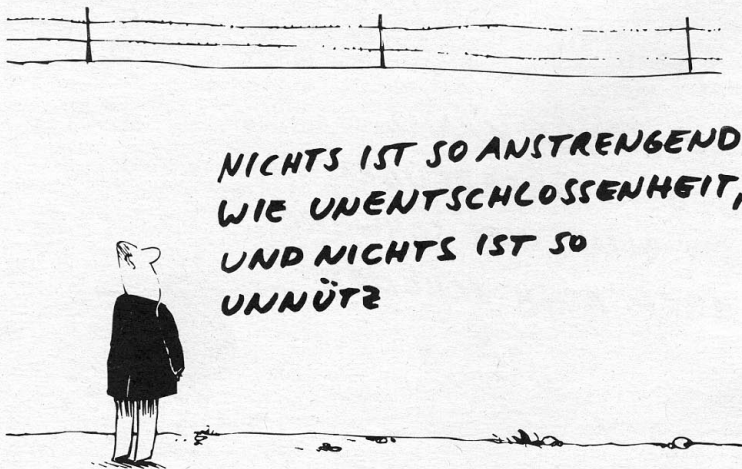 NICHTS IST SO ANSTRENGEND
WIE UNENTSCHLOSSENHEIT,
UND NICHTS IST SO
UNNÜTZ